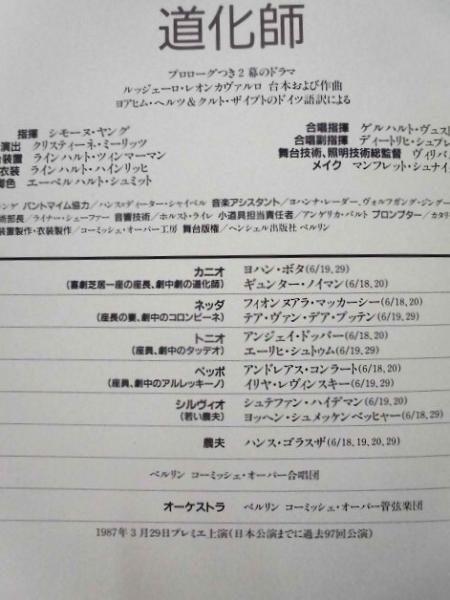 道化師
プロローグつき2幕のドラマ
ルッジェーロ・レオンカヴァルロ 台本および作曲
ヨアヒム・ヘルツ&クルト・ザイプトのドイツ語訳による
指揮 シモーヌ・ヤング 合唱指揮 ゲルハルト・ヴュス
演出 クリスティーネ・ミーリッツ 合唱副指揮 ディートリヒ・シュプレ
装置 ラインハルト・ツィンマーマン 舞台技術、照明技術総監督 ヴィリバ
衣装 ラインハルト・ハインリッヒ メイク マンフレット・シュナイ
脚色 エーベルハルト・シュミット
ング パントマイム協力/ハンス=ディーター・シャイベル 音楽アシスタント/ヨハンナ・レーダー、ヴォルフガング・ジンダー
術部長/ライナー・シェーファー 音響技術/ホルスト・ライレ 小道具担当責任者/アンゲリカ・バルト プロンプター/カタリ
装置製作・衣装製作/コーミッシェ・オーパー工房 舞台版権/ヘンシェル出版社 ベルリン
カニオ ヨハン・ボタ(6/19、29)
(喜劇芝居一座の座長、劇中劇の道化師) ギュンター・ノイマン(6/18、20)
ネッダ フィオンヌアラ・マッカーシー(6/18、20)
(座長の妻、劇中のコロンビーネ) テア・ヴァン・デア・プッテン(6/19、29)
トニオ アンジェイ・ドッバー(6/18、20)
(座員、劇中のタッデオ) エーリヒ・シュトゥム(6/19、29)
ペッポ アンドレアス・コンラート(6/18、20)
(座員、劇中のアルレッキーノ) イリヤ・レヴィンスキー(6/19、29)
シルヴィオ シュテファン・ハイデマン(6/19、20)
(若い農夫) ヨッヘン・シュメッケンベッヒャー(6/18、29)
農夫 ハンス・ゴラスザ(6/18、19、20、29)
ベルリン コーミッシェ・オーパー合唱団
オーケストラ ベルリン コーミッシェ・オーパー管弦楽団
1987年3月29日プレミエ上演(日本公演までに過去97回公演)